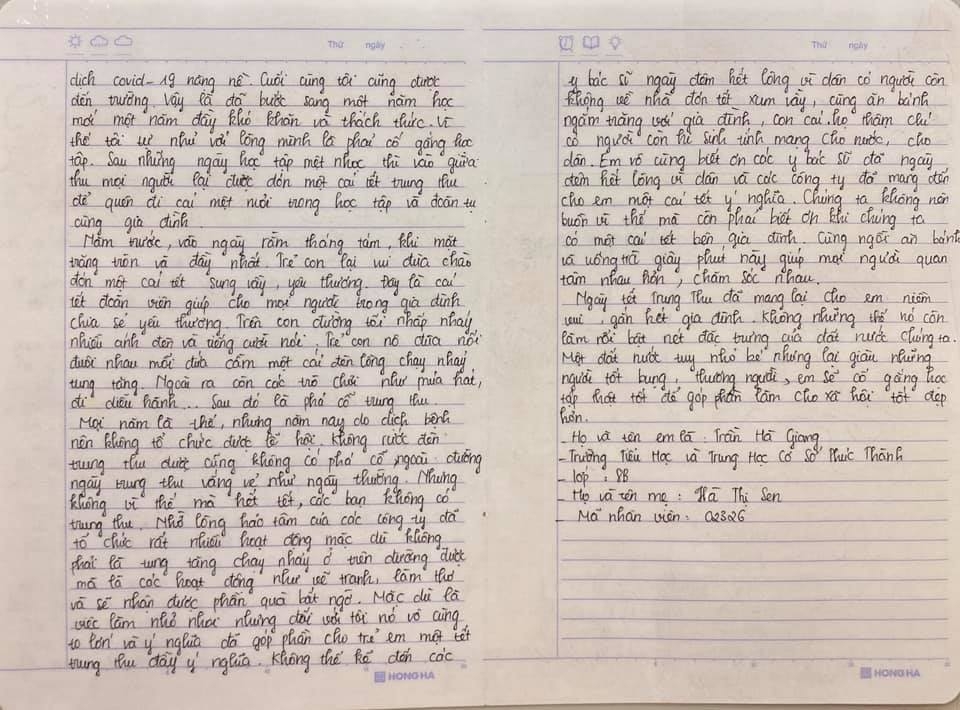 Thứ ngày
dịch covid-19 nặng nề. Cuối cùng tôi cũng được
đến trường. Vậy là đã bước sang một năm học
mới một năm đầy khó khăn và thách thức. Vì
thế tôi tự nhủ với lòng mình là phải cố gắng học
tập. Sau những ngày học tập mệt nhọc thì vào giữa
thu mọi người lại được đón một cái tết trung thu
để quên đi cái mệt mỏi trong học tập và đoàn tụ
cùng gia đình.
Năm trước, vào ngày rằm tháng tám, khi mặt
trăng tròn và đầy nhất. Trẻ con lại vui đùa chào
đón một cái tết sung vầy, yêu thương. Đây là cái
tết đoàn viên giúp cho mọi người trong gia đình
chia sẻ yêu thương. Trên con đường tối nhấp nháy
nhiều ánh đèn và tiếng cười nói. Trẻ con nô đùa nối
đuôi nhau mỗi đứa cầm một cái đèn lồng chạy nhảy
tung tăng. Ngoài ra còn các trò chơi như múa hát,
đi diễu hành... Sau đó là phá cỗ trung thu.
Mọi năm là thế, nhưng năm nay do dịch bệnh
nên không tổ chức được lễ hội. Không rước đèn
trung thu được cũng không có phá cỗ, ngoài đường
ngày trung thu vắng vẻ như ngày thường. Nhưng
không vì thế mà hết tết, các bạn không có
trung thu. Nhờ lòng hảo tâm của các công ty đã
tổ chức rất nhiều hoạt động mặc dù không
phải là tung tăng chạy nhảy ở trên đường được
mà là các hoạt động như vẽ tranh, làm thơ
và sẽ nhận được phần quà bất ngờ. Mặc dù là
việc làm nhỏ nhoi nhưng đối với tôi nó vô cùng
to lớn và ý nghĩa đã góp phần cho trẻ em một tết
trung thu đầy ý nghĩa. Không thể kể đến các
HONG HA
Thứ ngày
y bác sĩ ngày đêm hết lòng vì dân có người còn
không về nhà đón tết xum vầy, cùng ăn bánh
ngắm trăng với gia đình, con cái. họ thậm chí
có người còn hi sinh tính mạng cho nước, cho
dân. Em vô cùng biết ơn các y bác sĩ đã ngày
đêm hết lòng vì dân và các công ty đã mang đến
cho em một cái tết ý nghĩa. Chúng ta không nên
buồn vì thế mà còn phải biết ơn khi chúng ta
có một cái tết bên gia đình. Cùng ngồi ăn bánh
và uống trà giây phút này giúp mọi người quan
tâm nhau hơn, chăm sóc nhau.
Ngày tết Trung Thu đã mang lại cho em niềm
vui, gắn kết gia đình. Không những thế nó còn
làm nổi bật nét đặc trưng của đất nước chúng ta.
Một đất nước tuy nhỏ bé nhưng lại giàu những
người tốt bụng, thương người, em sẽ cố gắng học
tập thật tốt để góp phần làm cho xã hội tốt đẹp
hơn.
- Họ và tên em là : Trần Hà Giang
- Trường Tiểu Học và Trung Học Cơ Sở Phúc Thành
- lớp : 8B
- Họ và tên mẹ : Hà Thị Sen
- Mã nhân viên: 02326
HONG HA